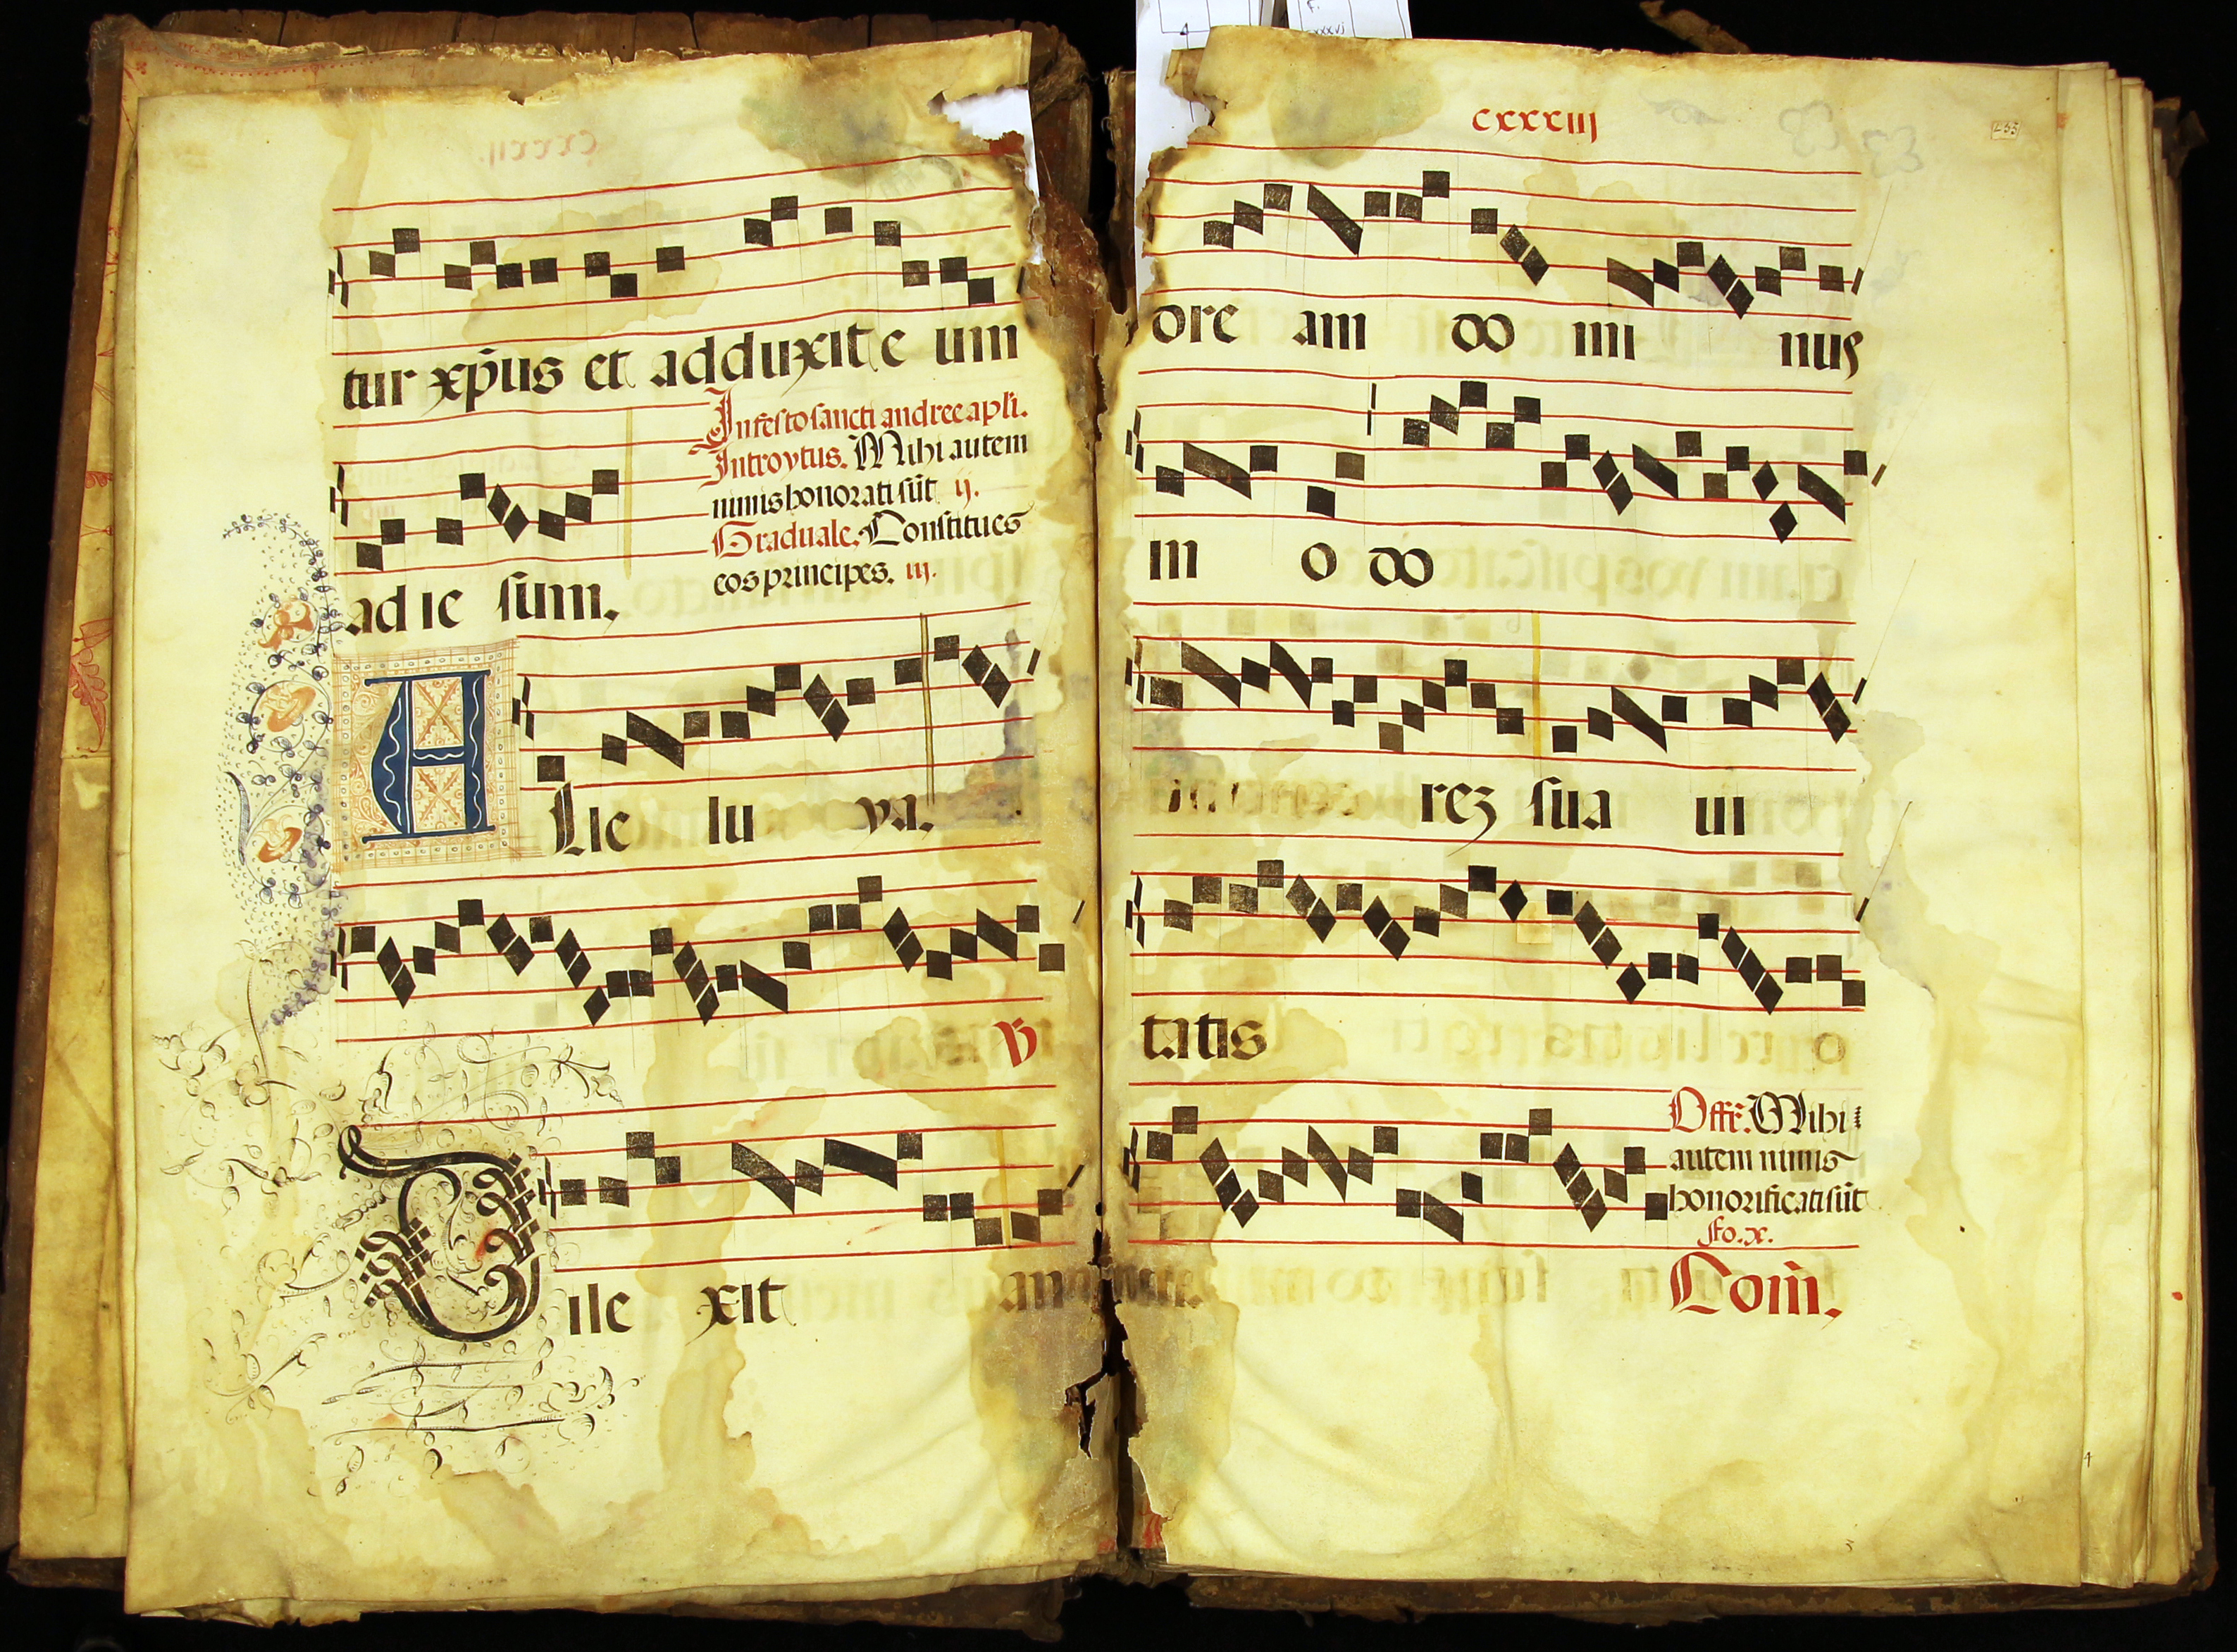 tur xp̄us et adduxit e um
In festo sancti andree apl'i.
Introytus. Mihi autem
nimis honorati sūt ij.
Graduale. Constitues
eos principes. iij.
ad ie sum.
A Lle lu ya.
V
Dile xit an
cxxxiij
dre am do mi nus
in o do
rez sua ui
tatis
Offr. Mihi
autem nimis
honorificati sūt
fo. x.
Com̄.